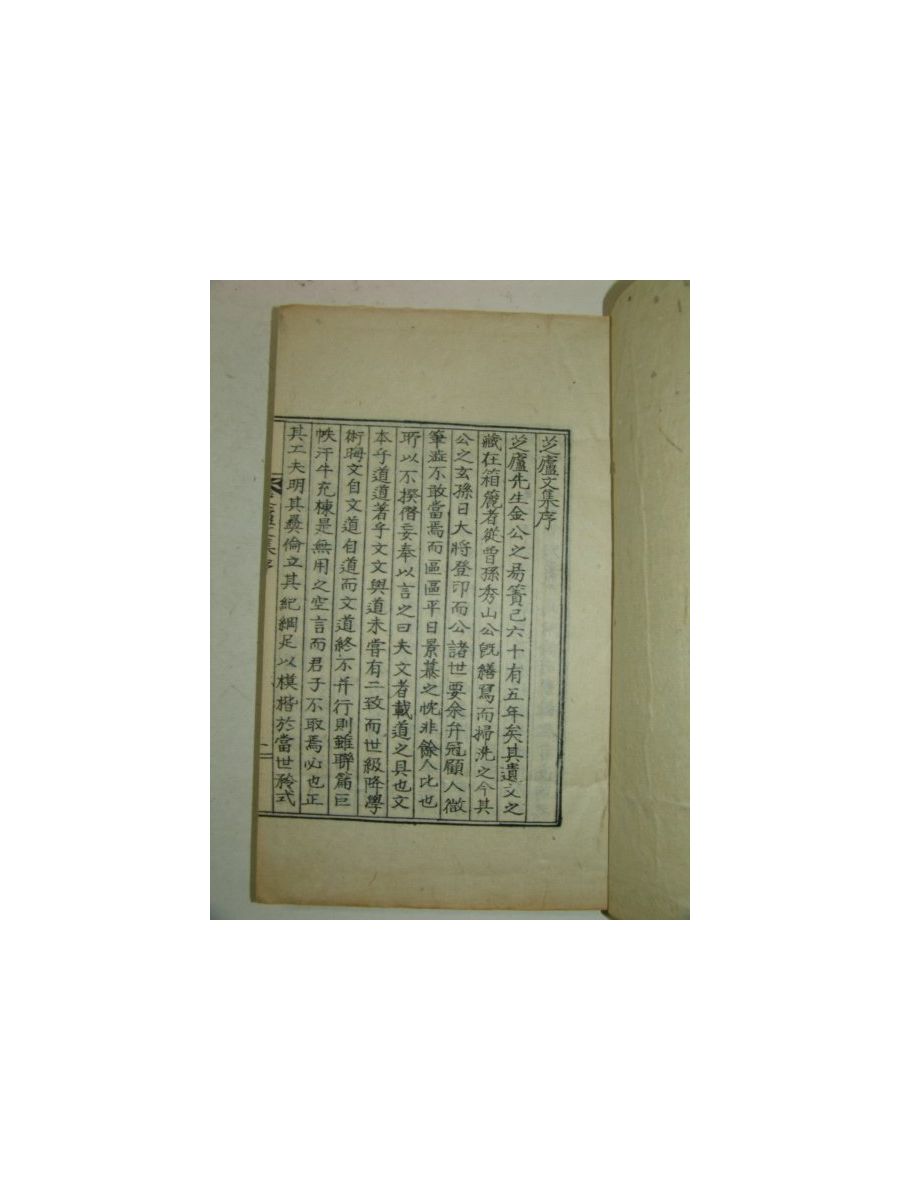 芝廬文集序
芝廬先生金公之易簀已六十有五年矣其遺文之
藏在箱簏者從曾孫秀山公旣繕寫而掃洗之今其
公之玄孫日大將登印而公諸世要余弁冠顧人微
筆澁不敢當焉而區區平日景慕之忱非餘人比也
所以不揆僭妄奉以言之曰夫文者載道之具也文
本乎道道著乎文文與道未嘗有二致而世級降學
術晦文自文道自道而文道終不幷行則雖聯篇巨
帙汗牛充棟是無用之空言而君子不取焉必也正
其工夫明其彝倫立其紀綱足以模楷於當世矜式
文集序
一